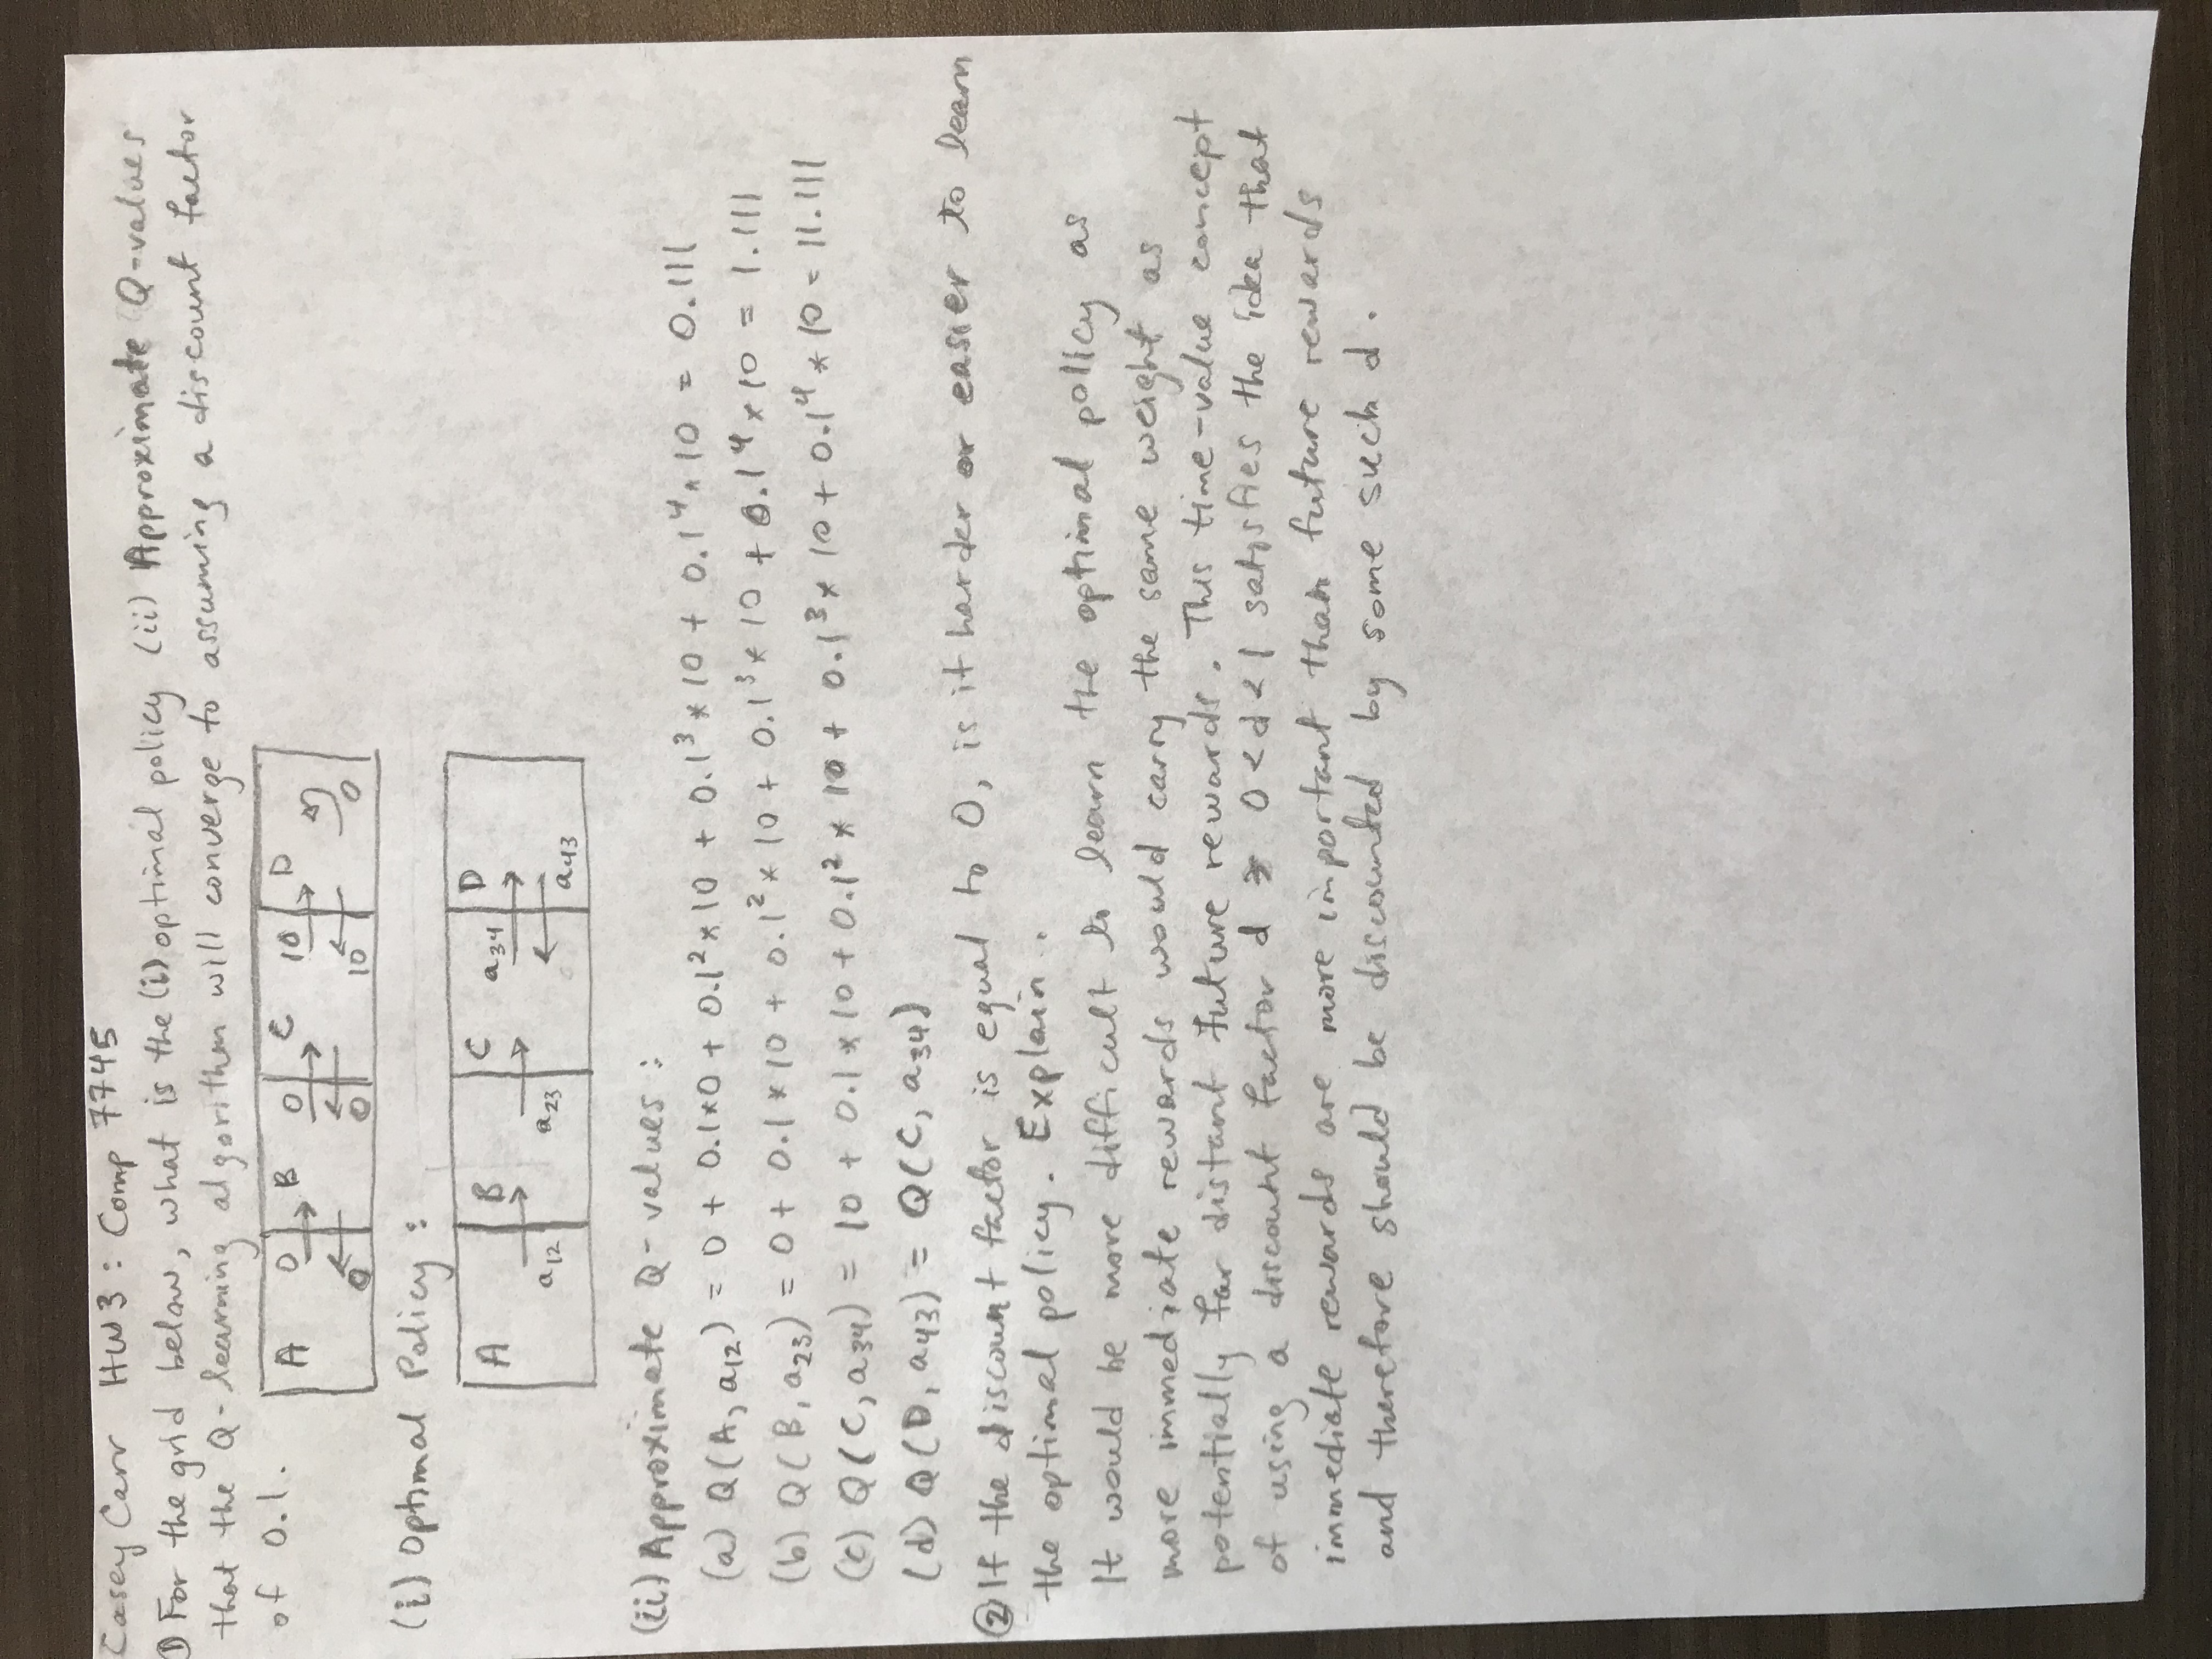 Casey Carr HW3: Comp 7745
① For the grid below, what is the (i) optimal policy (ii) Approximate Q-values
that the Q-learning algorithm will converge to assuming a discount factor
of 0.1.
A 0 B 0 C 10 D
0 0 10 0
(i) Optimal Policy:
A B C a34 D
a12 a23 a43
(ii) Approximate Q-values:
(a) Q(A, a12) = 0 + 0.1*0 + 0.1²*10 + 0.1³*10 + 0.1⁴*10 = 0.111
(b) Q(B, a23) = 0 + 0.1*10 + 0.1²*10 + 0.1³*10 + 0.1⁴*10 = 1.111
(c) Q(C, a34) = 10 + 0.1*10 + 0.1²*10 + 0.1³*10 + 0.1⁴*10 = 11.111
(d) Q(D, a43) = Q(C, a34)
② If the discount factor is equal to 0, is it harder or easier to learn
the optimal policy. Explain.
It would be more difficult to learn the optimal policy as
more immediate rewards would carry the same weight as
potentially far distant future rewards. This time-value concept
of using a discount factor d 0<d<1 satisfies the idea that
immediate rewards are more important than future rewards
and therefore should be discounted by some such d.